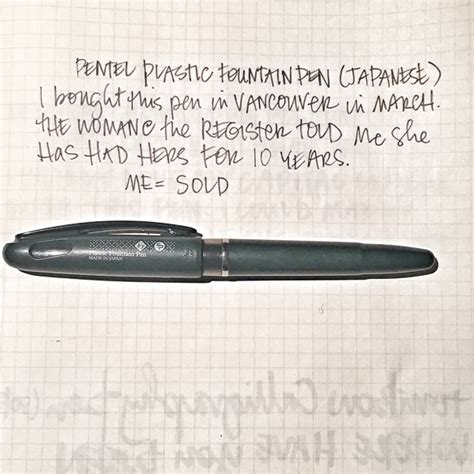 PENTEL PLASTIC FOUNTAIN PEN (JAPANESE)
I bought this pen in VANCOUVER in MARCH.
THE WOMAN @ the REGISTER TOLD Me She
HAS HAD HERS FOR 10 YEARS.
ME = SOLD
Plastic Fountain Pen
MADE IN JAPAN
WHERE HAVE YOU BEEN